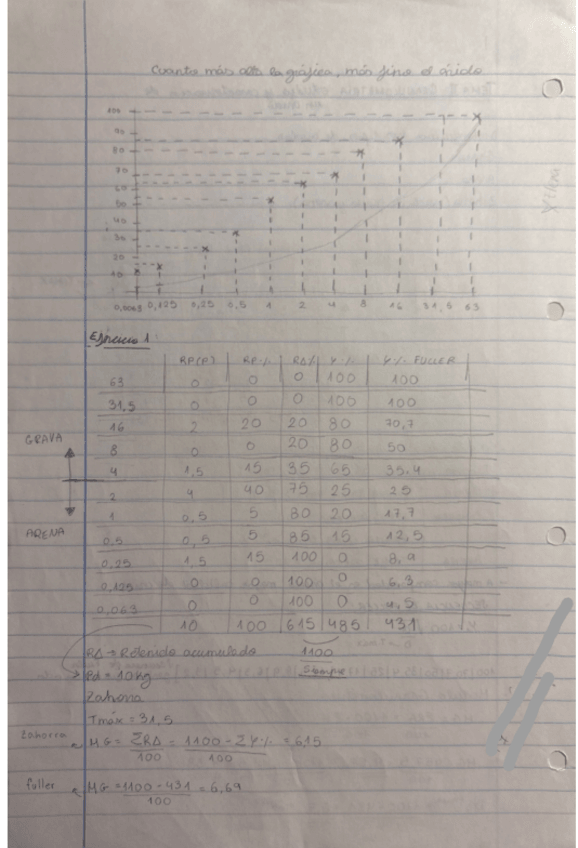 Cuanto más alta la gráfica, más fino el árido
100
90
80
70
60
50
40
30
20
10
0,063 0,125 0,25 0,5 1 2 4 8 16 31,5 63
Ejercicio 1:
RP(P) RP% RA% Y% Y% FULLER
63 0 0 0 100 100
31,5 0 0 0 100 100
16 2 20 20 80 70,7
GRAVA
8 0 0 20 80 50
4 1,5 15 35 65 35,4
2 4 40 75 25 25
1 0,5 5 80 20 17,7
ARENA
0,5 0,5 5 85 15 12,5
0,25 1,5 15 100 0 8,9
0,125 0 0 100 0 6,3
0,063 0 0 100 0 4,5
10 100 615 485 431
RA → Retenido acumulado 1100
Pd = 10kg Siempre
Zahorra
Tmáx = 31,5
Zahorra MG = ΣRA/100 = 1100 - ΣY%/100 = 6,15
fuller MG = 1100 - 431/100 = 6,69